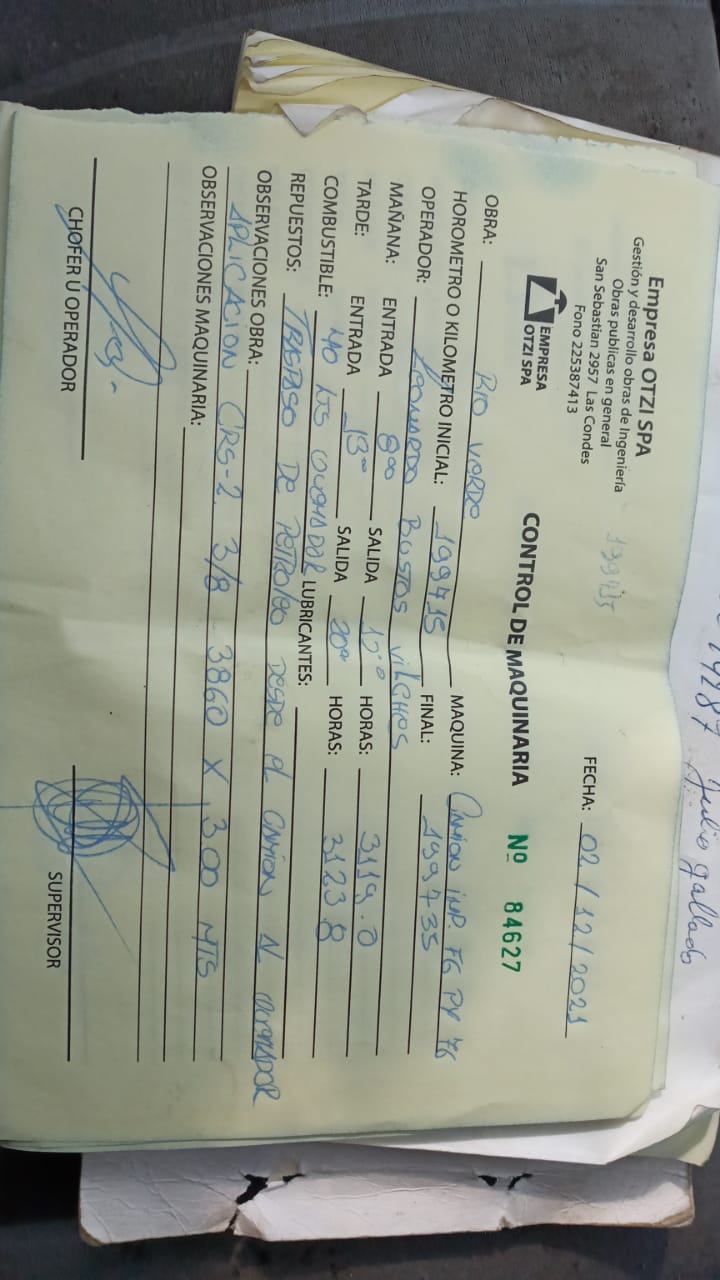 14287 Julio gallado
Empresa OTZI SPA
Gestión y desarrollo obras de Ingeniería
Obras publicas en general
San Sebastian 2957 Las Condes
Fono 225387413
199715
EMPRESA
OTZI SPA
FECHA: 02/12/2021
CONTROL DE MAQUINARIA Nº 84627
OBRA: RIO VERDE MAQUINA: CAMION IMP. FG PY 76
HOROMETRO O KILOMETRO INICIAL: 199715 FINAL: 199735
OPERADOR: LEONARDO BUSTOS VILCHES
MAÑANA: ENTRADA 8⁰⁰ SALIDA 12⁰⁰ HORAS: 3119.0
TARDE: ENTRADA 13⁰⁰ SALIDA 20⁰⁰ HORAS: 3123 8
COMBUSTIBLE: 40 LTS QUEMADOR LUBRICANTES:
REPUESTOS: TRASPASO DE PETROLEO DESDE EL CAMION AL QUEMADOR
OBSERVACIONES OBRA:
APLICACION CRS-2 3/8 3860 X 3.00 MTS
OBSERVACIONES MAQUINARIA:
CHOFER U OPERADOR SUPERVISOR